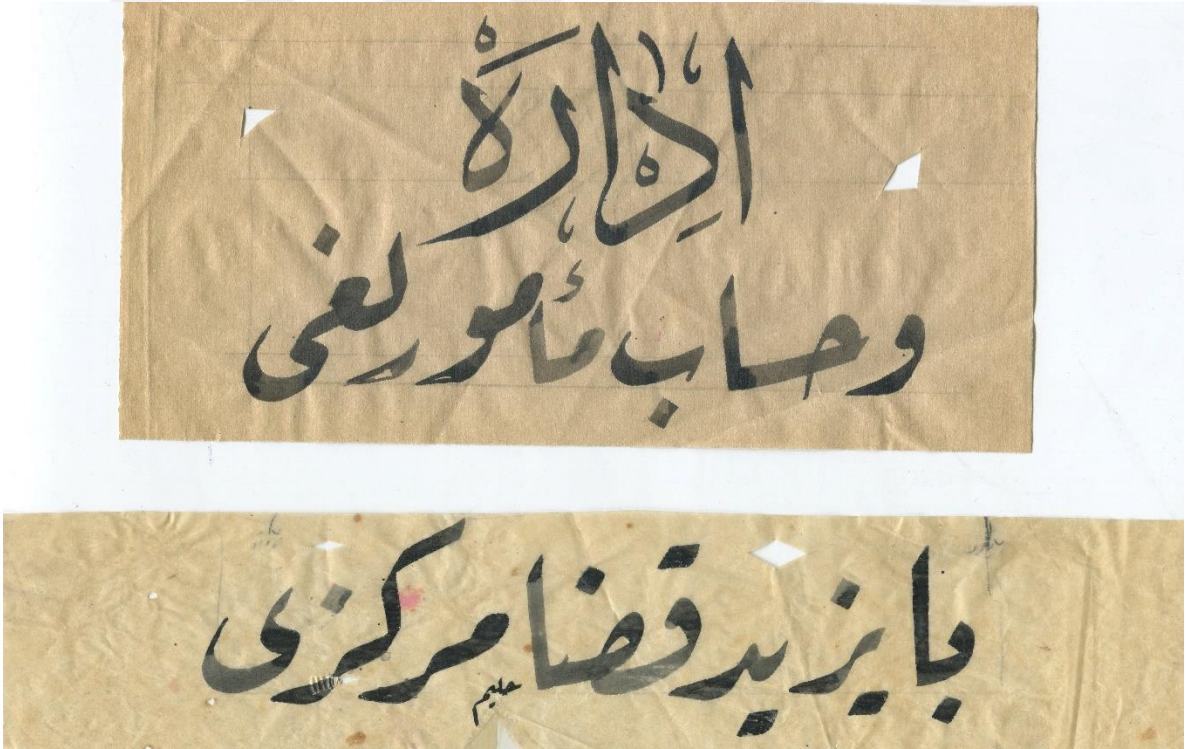 اداره
وحساب مأمورلغى
بايزيد قضا مركزى
حليم